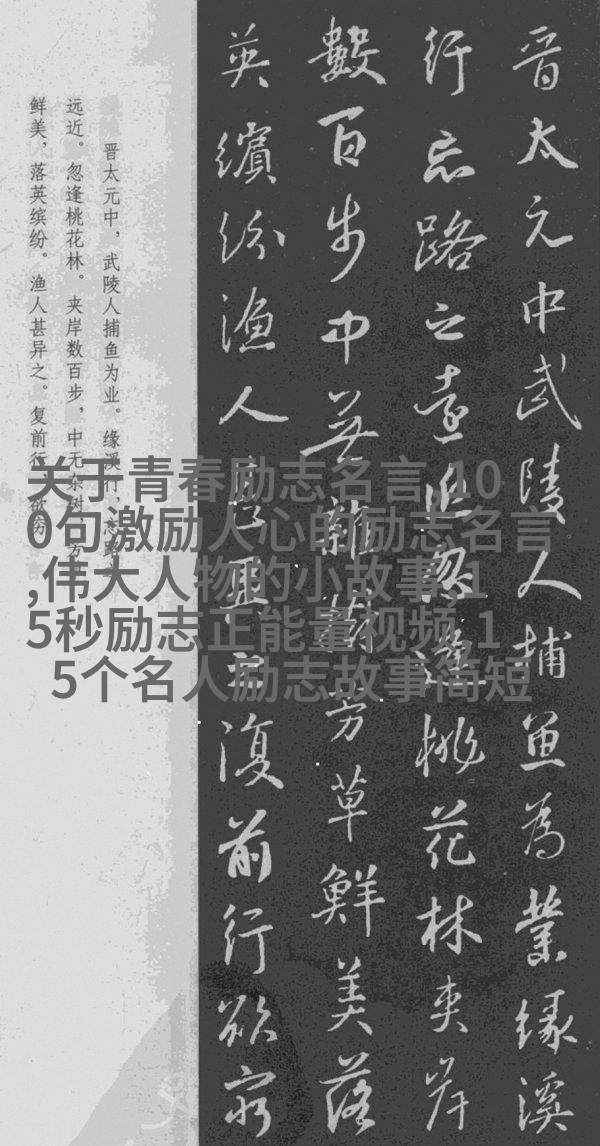 晋太元中武陵人捕鱼為業緣溪
行忘路之遠近忽逢桃花林夾岸
數百步中無雜樹芳草鮮美落
英繽紛漁人甚異之復前行欲窮
晋太元中，武陵人捕鱼为业。缘溪行，忘路之
远近。忽逢桃花林。夹岸数百步，中无杂树，芳草
鲜美，落英缤纷。渔人甚异之。复前行，欲穷
关于青春励志名言,10
0句激励人心的励志名言
,伟大人物的小故事,1
5秒励志正能量视频,1
5个名人励志故事简短